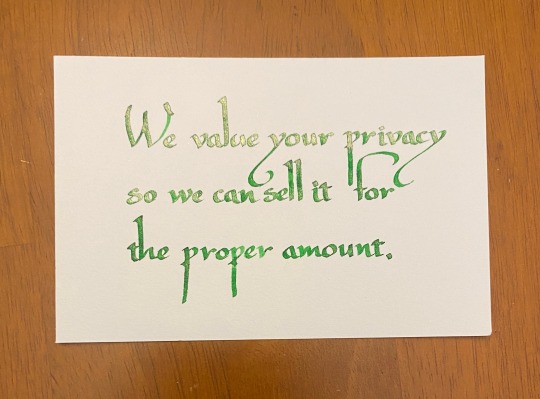 We value your privacy
so we can sell it for
the proper amount.